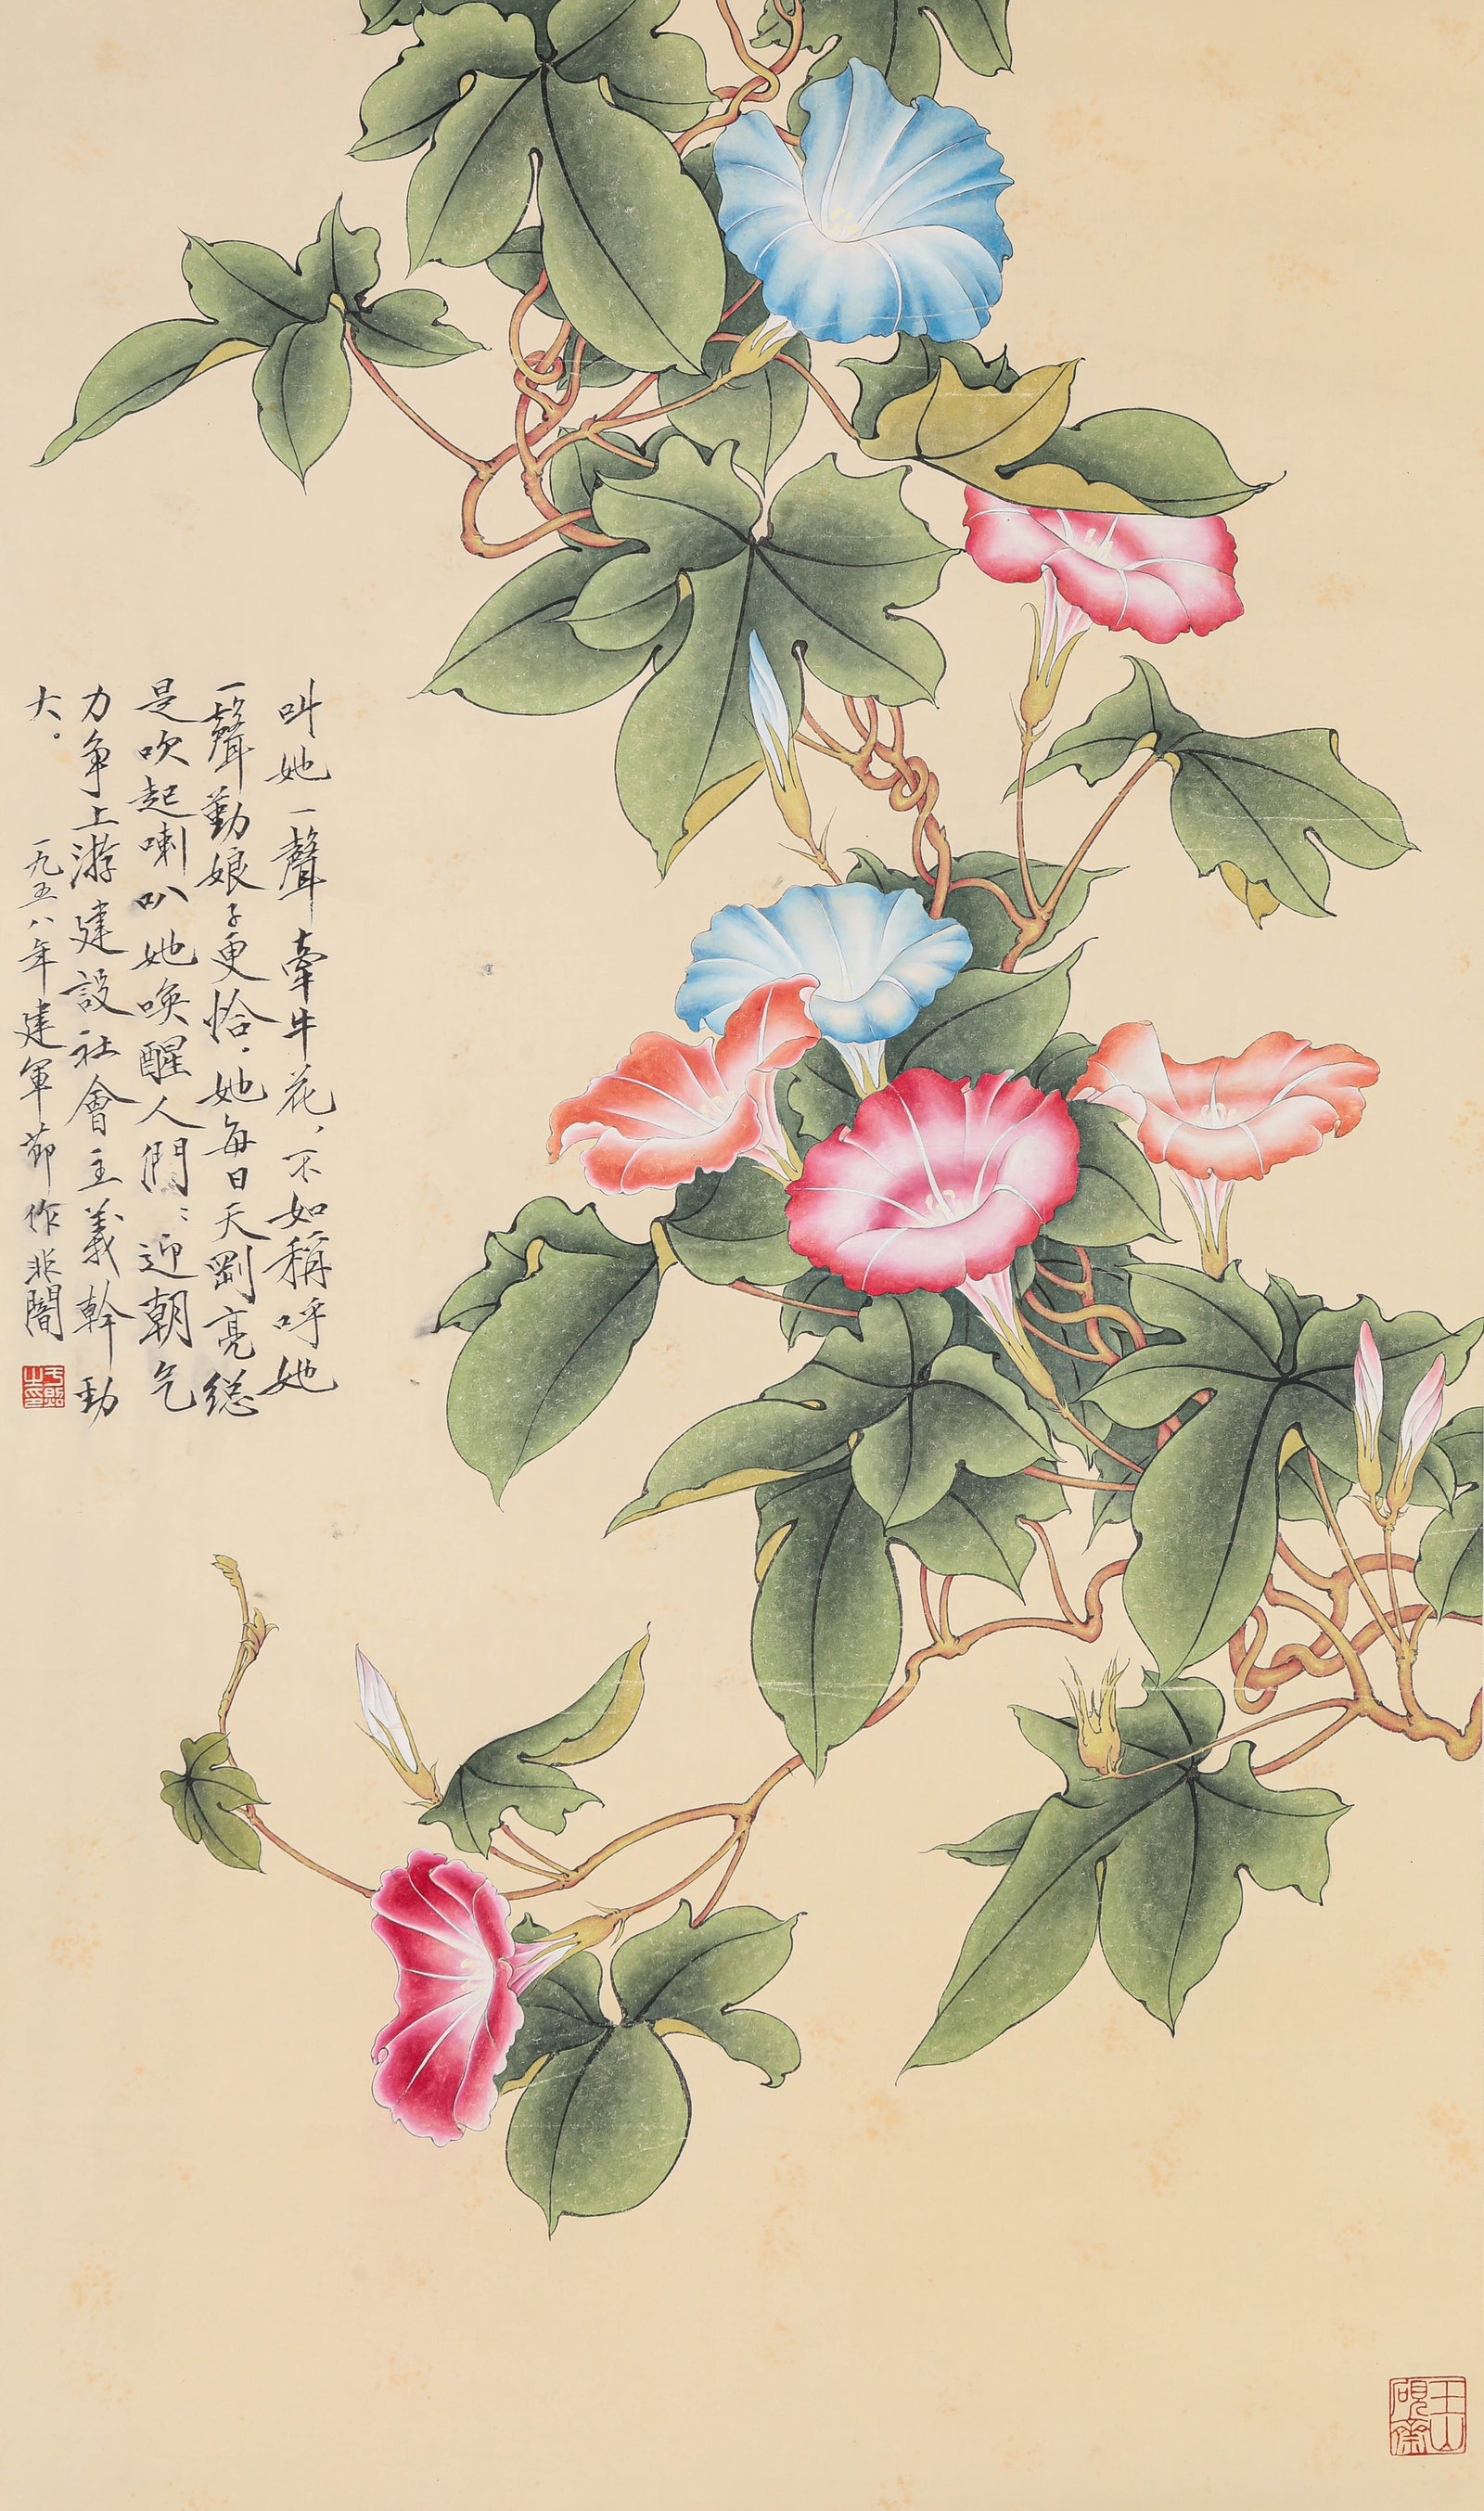 叫她一聲牽牛花，不如稱呼她
一聲勤娘子更恰．她每日天剛亮总
是吹起喇叭她喚醒人們：迎朝气
力争上游建設社會主義幹勁
大。
一九五八年建軍節作非闇
于照之印
玉山砚斋